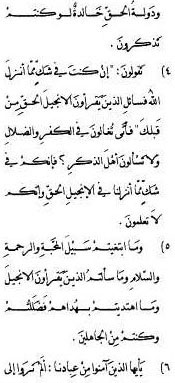 ودولة الحق خالدة لو كنتم
تذكرون .
(٤) تقولون : "إن كنت في شك مما أنزل
الله فسائل الذين يقرأون الإنجيل الحق من
قبلك" فأنى تغالون في الكفر والضلال
ولا تسألون أهل الذكر ؟ فإنكم في
شك مما أنزلنا في الإنجيل الحق وإنكم
لا تعلمون .
(٥) وما ابتغيتم سبيل المحبة والرحمة
والسلام وما سألتم الذين يقرأون الإنجيل
وما اهتديتم بهداهم فضللتم
وكنتم من الجاهلين .
(٦) يأيها الذين آمنوا من عبادنا : ألم تروا إلى